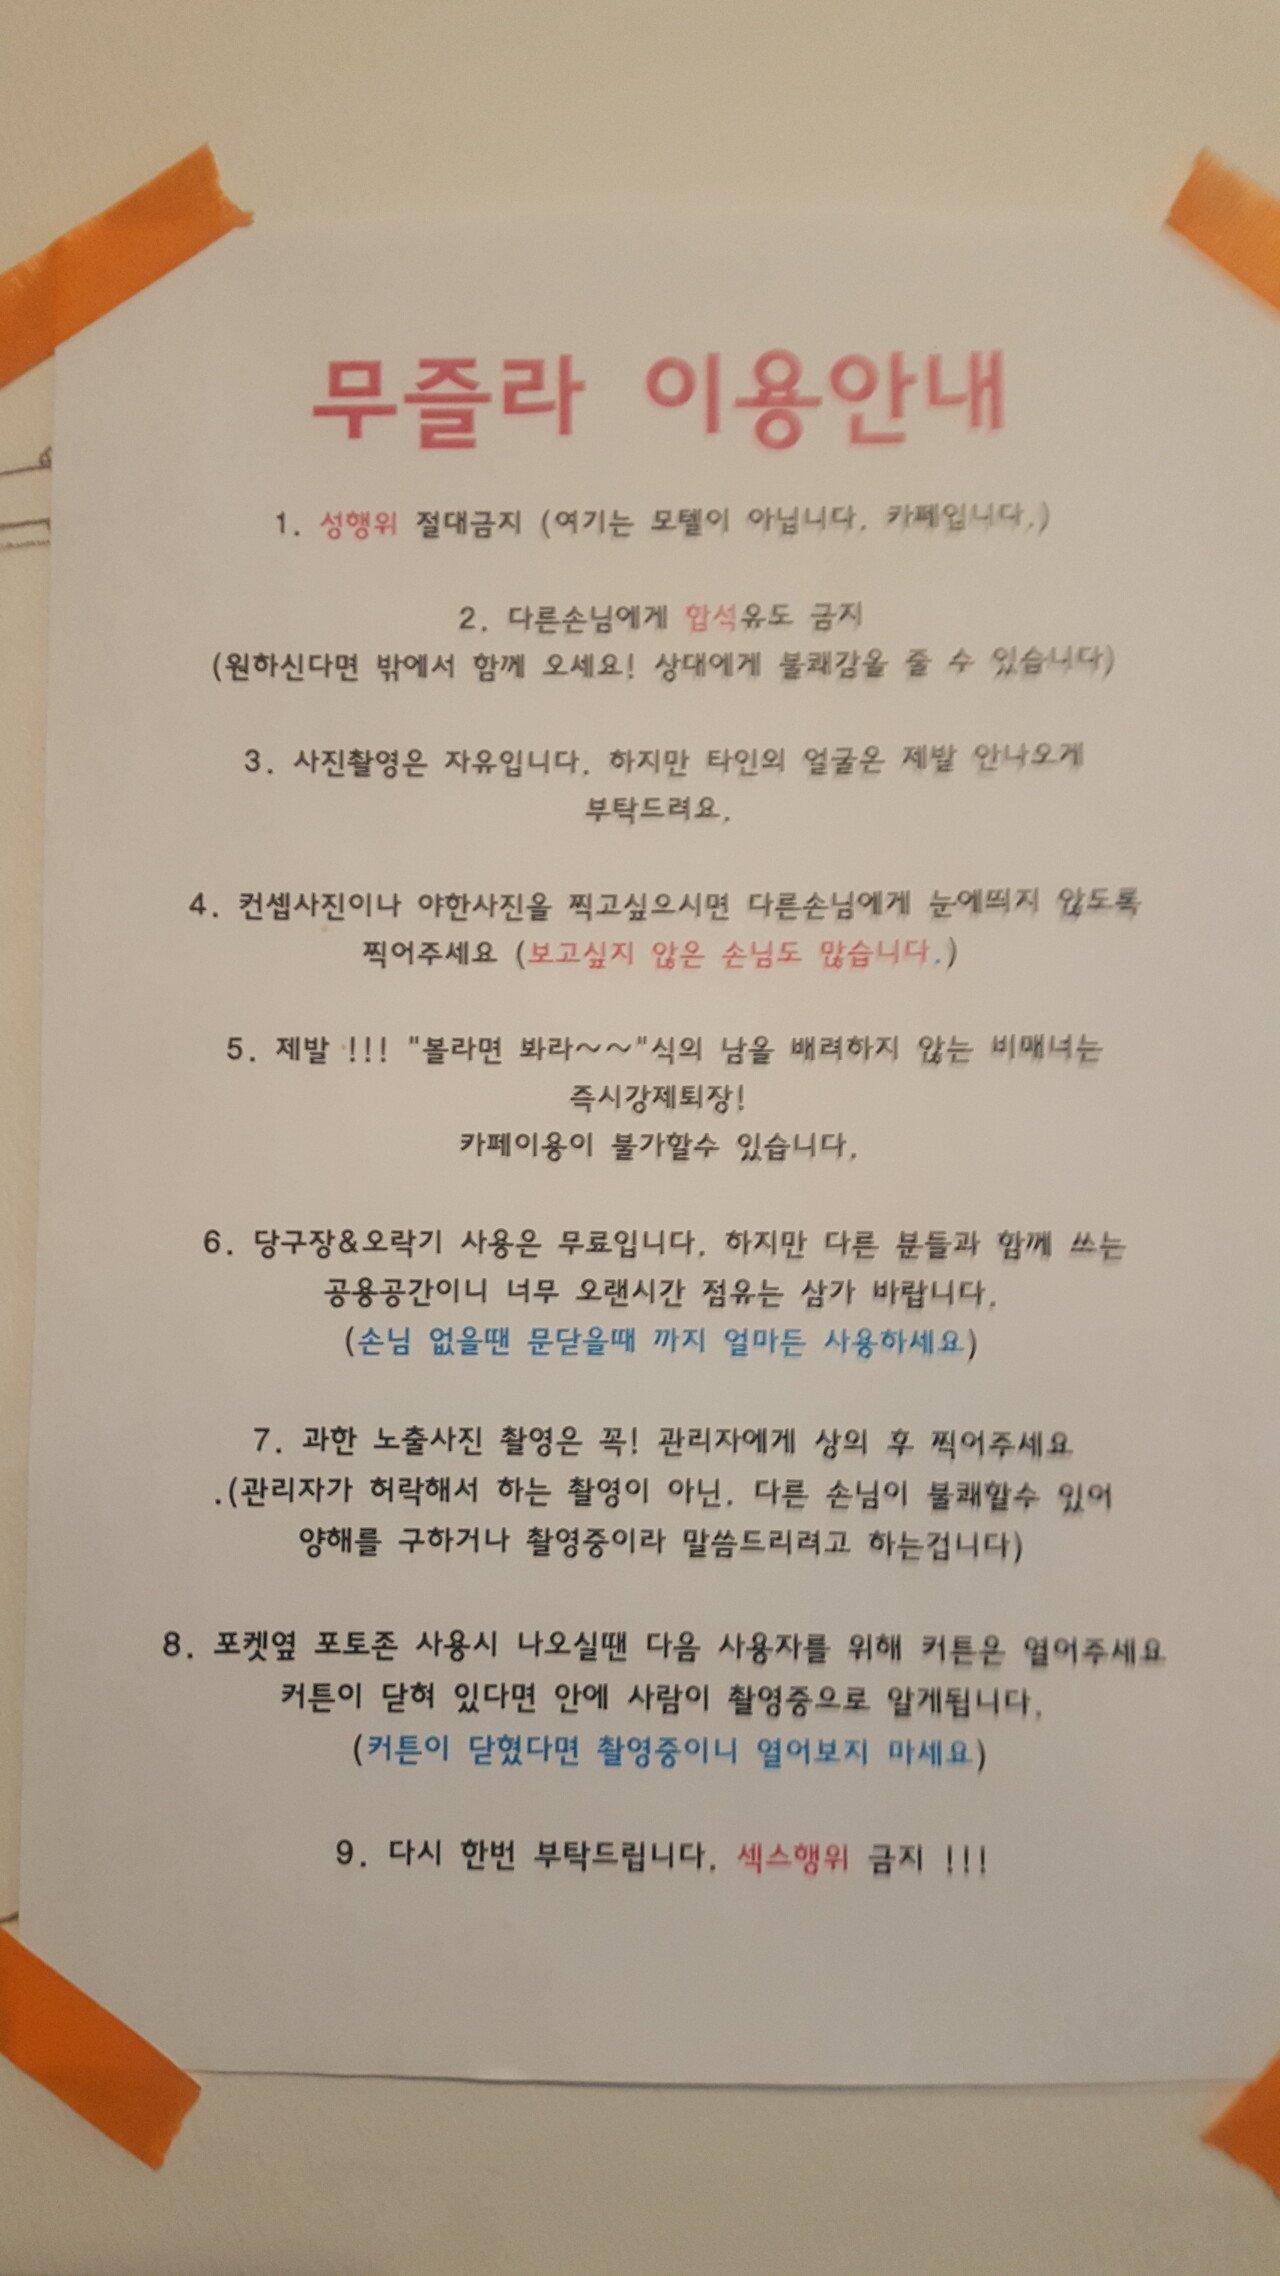 무즐라 이용안내
1. 성행위 절대금지 (여기는 모텔이 아닙니다. 카페입니다.)
2. 다른손님에게 합석유도 금지
(원하신다면 밖에서 함께 오세요! 상대에게 불쾌감을 줄 수 있습니다)
3. 사진촬영은 자유입니다. 하지만 타인의 얼굴은 제발 안나오게
부탁드려요.
4. 컨셉사진이나 야한사진을 찍고싶으시면 다른손님에게 눈에띄지 않도록
찍어주세요 (보고싶지 않은 손님도 많습니다.)
5. 제발 !!! "볼라면 봐라~~"식의 남을 배려하지 않는 비매너는
즉시강제퇴장!
카페이용이 불가할수 있습니다.
6. 당구장&오락기 사용은 무료입니다. 하지만 다른 분들과 함께 쓰는
공용공간이니 너무 오랜시간 점유는 삼가 바랍니다.
(손님 없을땐 문닫을때 까지 얼마든 사용하세요)
7. 과한 노출사진 촬영은 꼭! 관리자에게 상의 후 찍어주세요
.(관리자가 허락해서 하는 촬영이 아닌. 다른 손님이 불쾌할수 있어
양해를 구하거나 촬영중이라 말씀드리려고 하는겁니다)
8. 포켓옆 포토존 사용시 나오실땐 다음 사용자를 위해 커튼은 열어주세요
커튼이 닫혀 있다면 안에 사람이 촬영중으로 알게됩니다.
(커튼이 닫혔다면 촬영중이니 열어보지 마세요)
9. 다시 한번 부탁드립니다. 섹스행위 금지 !!!